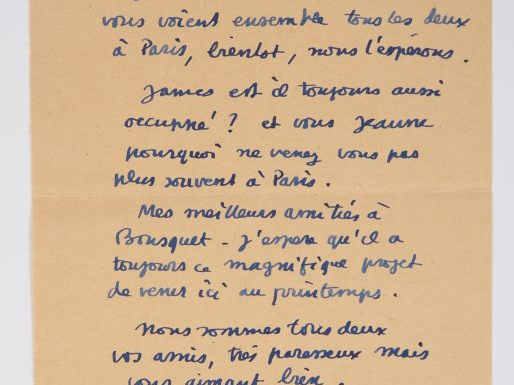 vous voient ensemble tous les deux
à Paris, bientot, nous l'espérons.
James est il toujours aussi
occuppé ? et vous Jeanne
pourquoi ne venez vous pas
plus souvent à Paris.
Mes meilleurs amitiés à
Bousquet - J'espere qu'il a
toujours ce magnifique projet
de venir ici au printemps.
Nous sommes tous deux
vos amis, très paresseux mais
vous aimant bien.